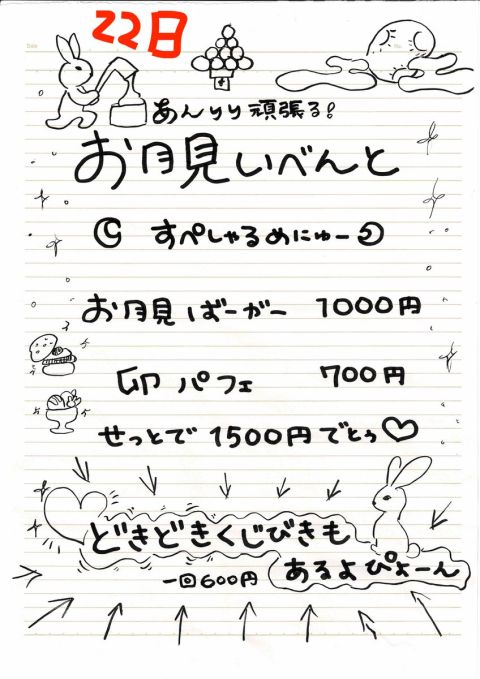 22日
あんりり頑張る!
お月見いべんと
すぺしゃるめにゅー
お月見ばーがー 1000円
卵パフェ 700円
せっとで1500円でとぅ♡
どきどきくじびきも
あるよぴょーん
一回600円